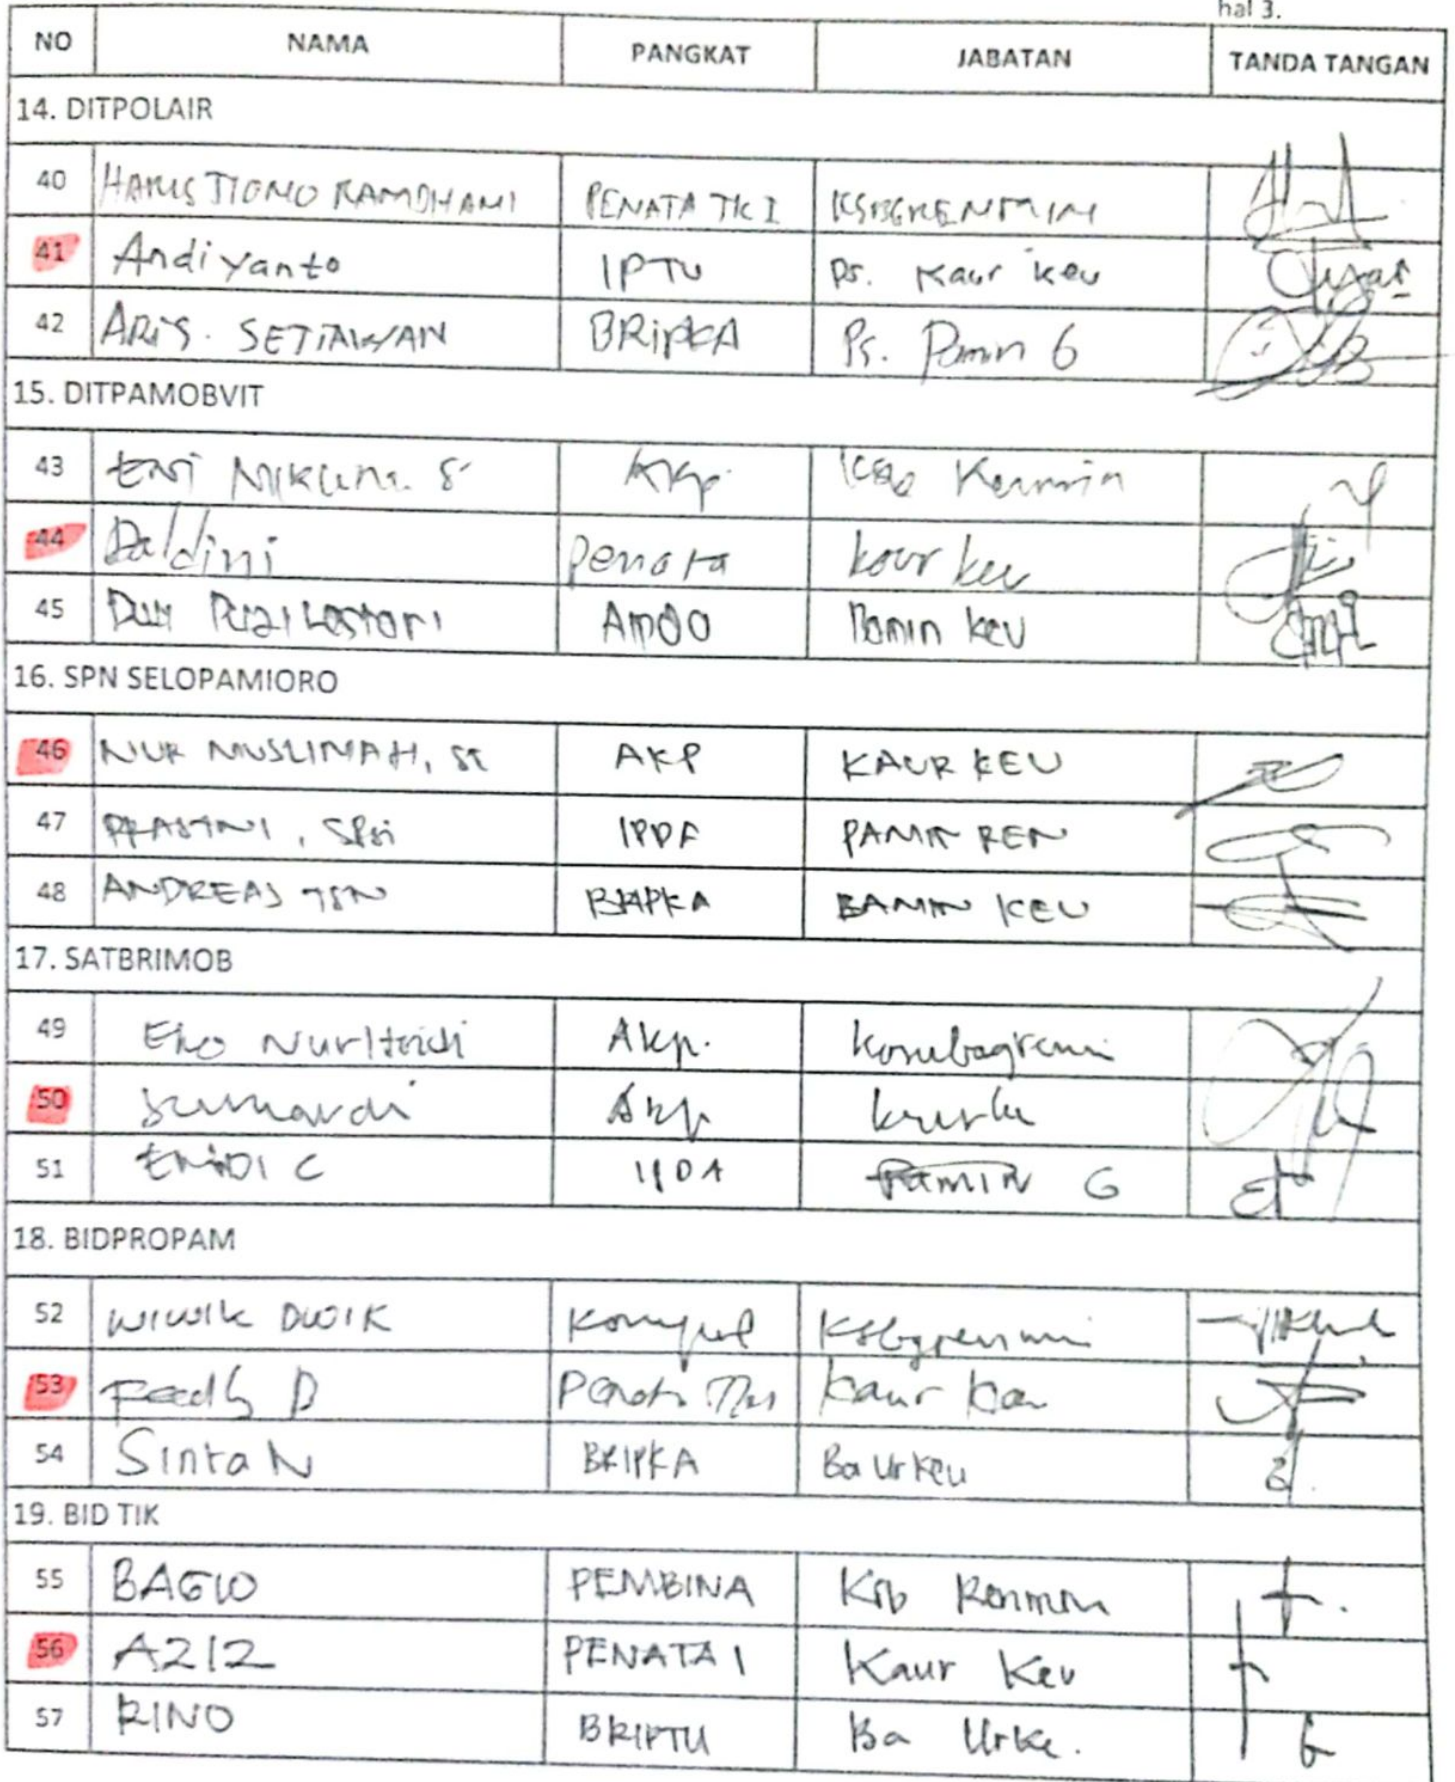 hal 3.
NO NAMA PANGKAT JABATAN TANDA TANGAN
14. DITPOLAIR
40 HARIS TIONO RAMDHANI PENATA TK I KSBGRENMIN
41 Andiyanto IPTU Ps. Kaur keu
42 ARIS. SETIAWAN BRIPKA Ps. Pamin 6
15. DITPAMOBVIT
43 AKp.
44 Daldini Penata kaur keu
45 Lestari AIPDA Bamin keu
16. SPN SELOPAMIORO
46 NUR MUSLIMAH, SE AKP KAUR KEU
47 PRASTINI, SPsi IPDA PAMIN REN
48 ANDREAS BRIPKA BAMIN KEU
17. SATBRIMOB
49 Eko Akp.
50 Sumardi Akp
51 C IPDA PAMIN G
18. BIDPROPAM
52 WIWIK DWIK Kompol
53 D kaur
54 Sinta N BRIPKA Ba Urkeu
19. BID TIK
55 BAGIO PEMBINA Ksb Renmin
56 AZIZ PENATA I Kaur Keu
57 RINO BRIPTU Ba Urke.